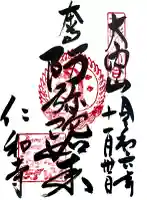 大内山
令和六年
十一月廿日
奉拝
阿弥陀如来
仁和寺